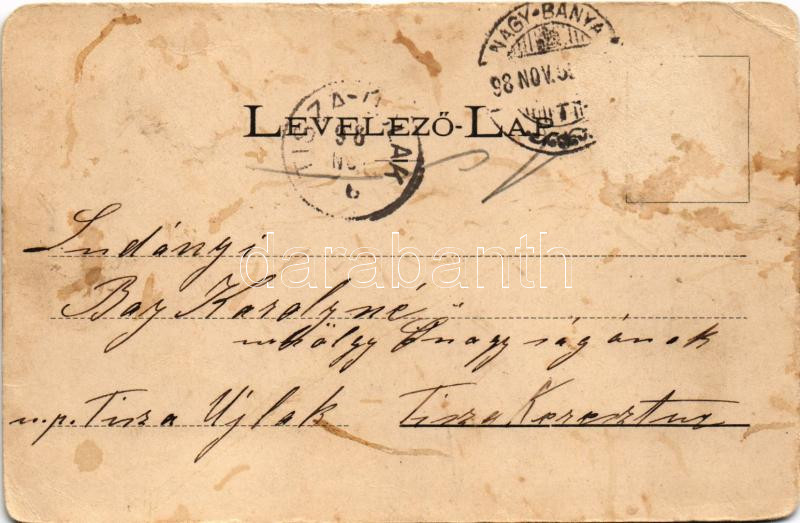 NAGY-BÁNYA
98 NOV.
LEVELEZŐ-LAP
TISZA-ÚJLAK
98
NOV
6
Ludányi
Bay Karolyné
úrhölgy Őnagyságának
darabanth
u.p. Tisza Ujlak Tisza Keresztur